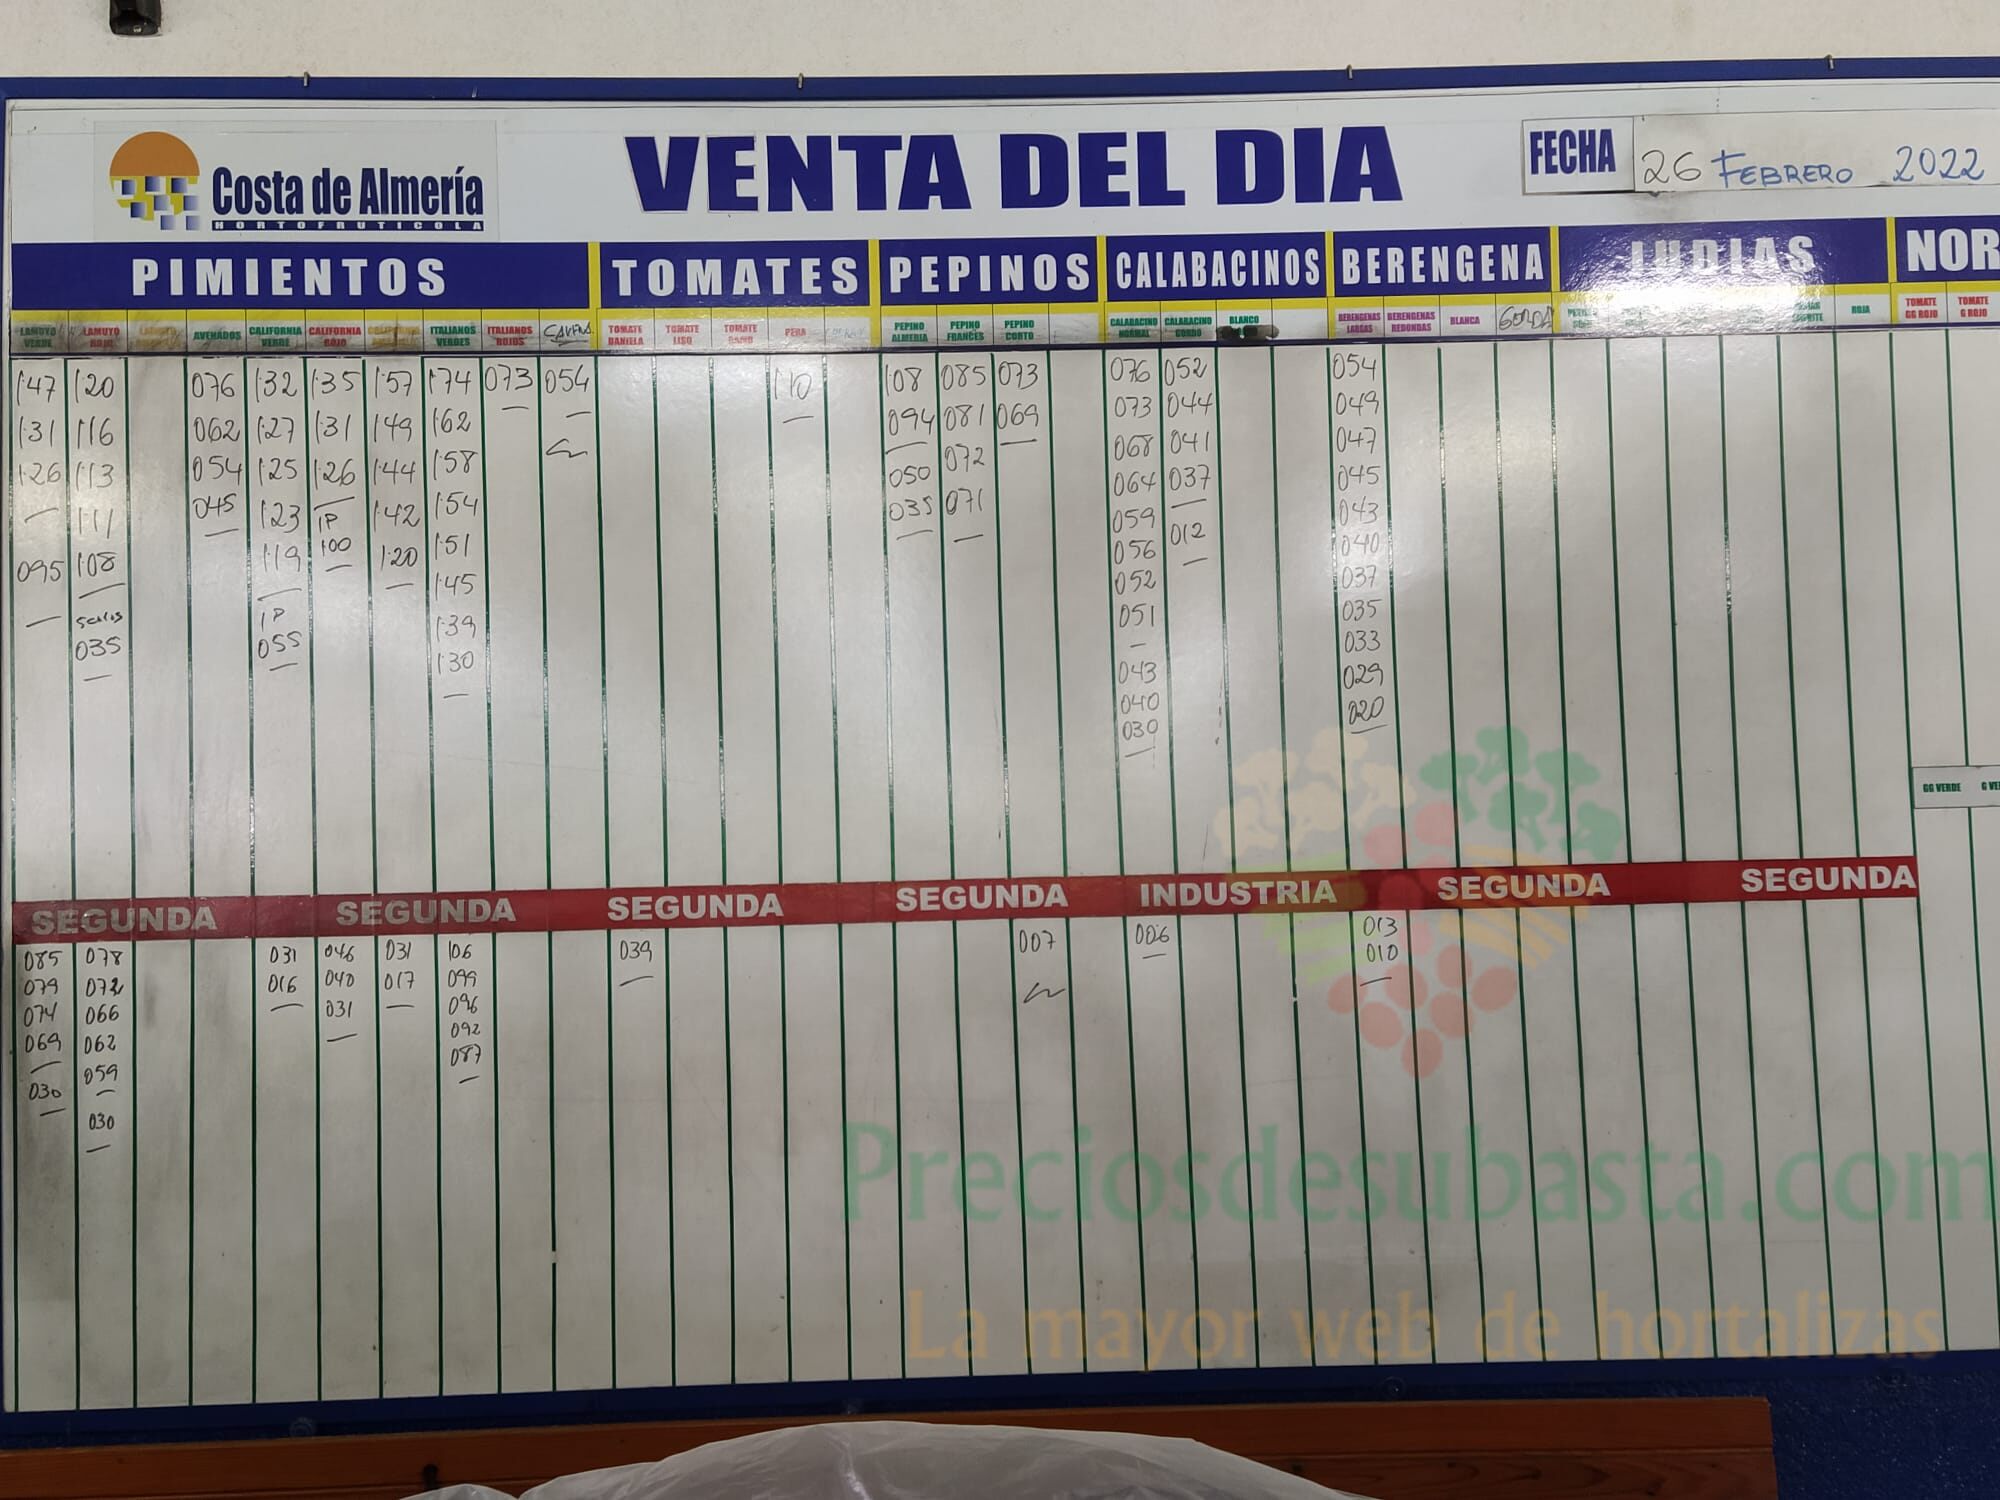 Costa de Almería
HORTOFRUTICOLA
VENTA DEL DIA
FECHA 26 FEBRERO 2022
PIMIENTOS TOMATES PEPINOS CALABACINOS BERENGENA JUDIAS NOR
LAMUYO VERDE
LAMUYO ROJO
AVENADOS
CALIFORNIA VERDE
CALIFORNIA ROJO
ITALIANOS VERDES
ITALIANOS ROJOS
TOMATE DANIELA
TOMATE LISO
TOMATE RAMO
PERA
PEPINO ALMERIA
PEPINO FRANCES
PEPINO CORTO
CALABACINO NORMAL
CALABACINO GORDO
BLANCO
BERENGENAS LARGAS
BERENGENAS REDONDAS
BLANCA
GORDA
ROJA
TOMATE GG ROJO
TOMATE G ROJO
1'47 1'20 076 1'32 1'35 1'57 1'74 073 054 1'10 1'08 085 073 076 052 054
1'31 1'16 062 1'27 1'31 1'49 1'62 094 081 069 073 044 049
1'26 1'13 054 1'25 1'26 1'44 1'58 050 072 068 041 047
1'11 045 1'23 1P 1'42 1'54 035 071 064 037 045
095 1'08 1'19 1'00 1'20 1'51 059 012 043
035 1P 1'45 056 040
055 1'39 052 037
1'30 051 035
043 033
040 029
030 020
GG VERDE G VE
SEGUNDA SEGUNDA SEGUNDA SEGUNDA INDUSTRIA SEGUNDA SEGUNDA
085 078 031 046 031 106 039 007 006 013
079 072 016 040 017 099 010
074 066 031 096
069 062 092
030 059 087
030
Preciosdesubasta.com
La mayor web de hortalizas